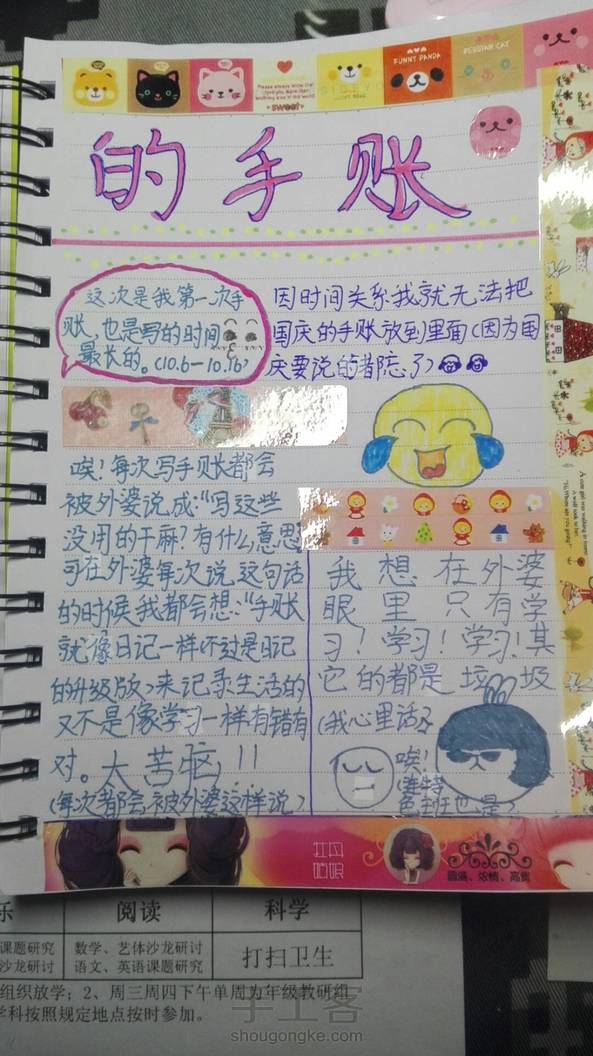 FUNNY PANDA
PERSIAN CAT
sweet
的手账
这次是我第一次手
账，也是写的时间
最长的。(10.6—10.16)
因时间关系我就无法把
国庆的手账放到里面(因为国
庆要说的都忘了)
唉!每次写手账都会
被外婆说成:“写这些
没用的干麻?有什么意思
可在外婆每次说这句话
的时候我都会想:“手账
就像日记一样不过是日记
的升级版,来记录生活的
又不是像学习一样有错有
对。大苦恼!!
(每次都会被外婆这样说)
我想在外婆
眼里只有学
习!学习!学习!其
它的都是垃圾
(我心里话)
唉!
牡丹
姑娘
圆满、浓情、高贵
乐
阅读
科学
课题研究
数学、艺体沙龙研讨
打扫卫生
沙龙研讨
语文、英语课题研究
组织放学；2、周三周四下午单周为年级教研组
学科按照规定地点按时参加。
手工客
shougongke.com